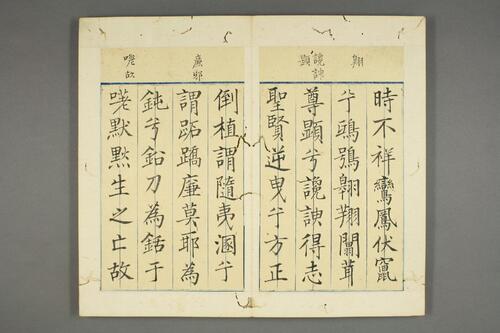 時不祥鸞鳳伏竄
兮鴟鴞翱翔闒茸
尊顯兮讒諛得志
聖賢逆曳兮方正
倒植謂隨夷溷兮
謂跖蹻廉莫耶為
鈍兮鉛刀為銛于
嗟默黙生之亡故
讒諛
顯
廉邪
嗟故